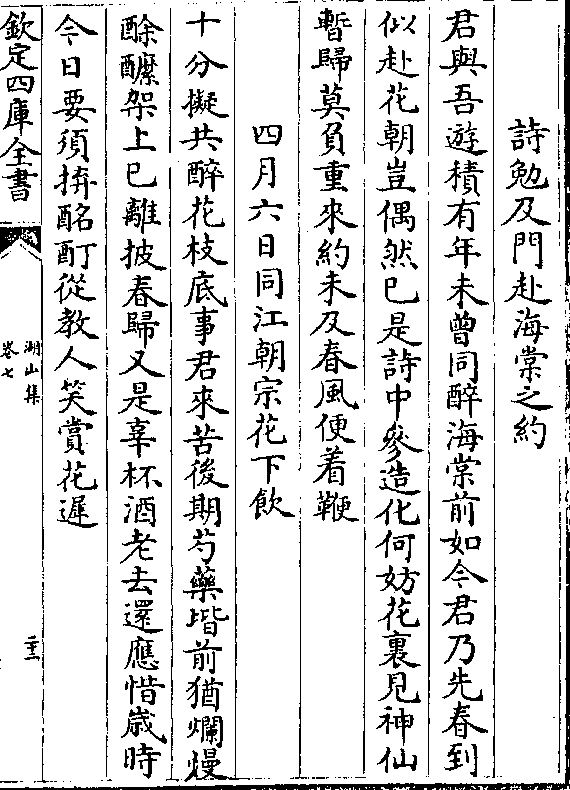 詩勉及門赴海棠之約
君與吾遊積有年未曾同醉海棠前如今君乃先春到
似赴花朝豈偶然已是詩中參造化何妨花裏見神仙
暫歸莫負重來約未及春風便着鞭
四月六日同江朝宗花下飲
十分擬共醉花枝底事君來苦後期芍藥堦前猶爛熳
酴醾架上已離披春歸又是辜杯酒老去還應惜歲時
今日要須拚酩酊從教人笑賞花遲
欽定四庫全書
湖山集
卷七
二十二